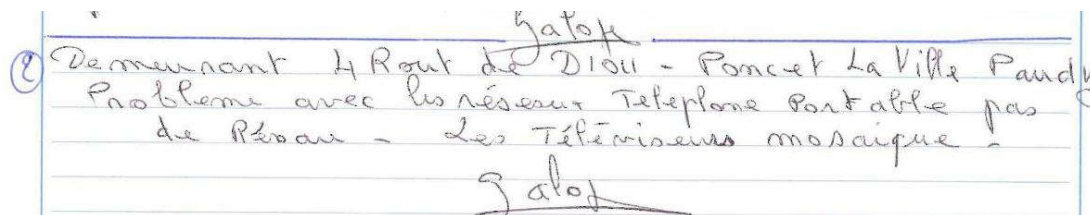 Galop
② Demeurant 4 Rout de DIOU - Poncet La Ville Paudy
Probleme avec les réseaux Teleplone Portable pas
de Résau - Les Téléviseurs mosaique -
Galop